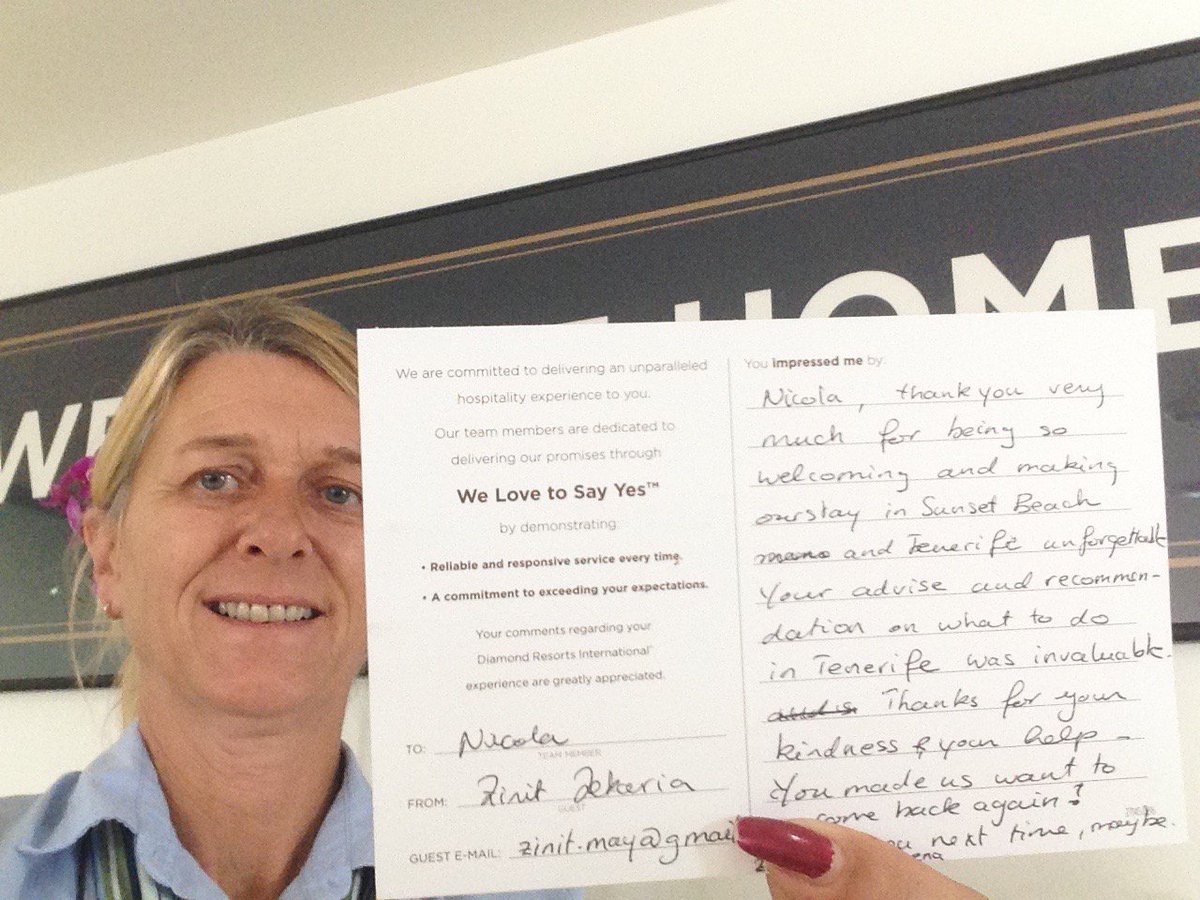 WE
HOME
We are committed to delivering an unparalleled
hospitality experience to you.
Our team members are dedicated to
delivering our promises through
We Love to Say Yes™
by demonstrating:
• Reliable and responsive service every time.
• A commitment to exceeding your expectations.
Your comments regarding your
Diamond Resorts International®
experience are greatly appreciated.
TO: Nicola
TEAM MEMBER
FROM: Zinit Zekeria
GUEST
GUEST E-MAIL: zinit.may@gmai
You impressed me by:
Nicola, thank you very
much for being so
welcoming and making
our stay in Sunset Beach
and Tenerife unforgettable
Your advise and recommen-
dation on what to do
in Tenerife was invaluable.
Thanks for your
kindness & your help -
You made us want to
come back again!
next time, maybe.